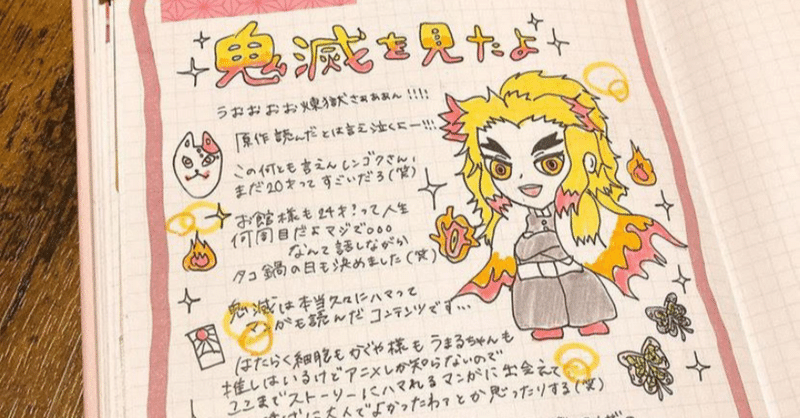 鬼滅を見たよ
うおおおお煉獄さぁぁぁん!!!!
原作読んだとは言え泣くにー!!!
この何とも言えんレンゴクさん、
まだ20才ってすごいだろ(笑)
お館様も24才?って人生
何周目だよマジで○○○
なんて話しながら
タコ鍋の日も決めました(笑)
鬼滅は本当久々にハマって
マンガも読んだコンテンツです…
はたらく細胞もかぐや様もうまるちゃんも
推しはいるけどアニメしか知らないので
ここまでストーリーにハマれるマンガに出会えて
大人でよかったわァとか思ったりする(笑)